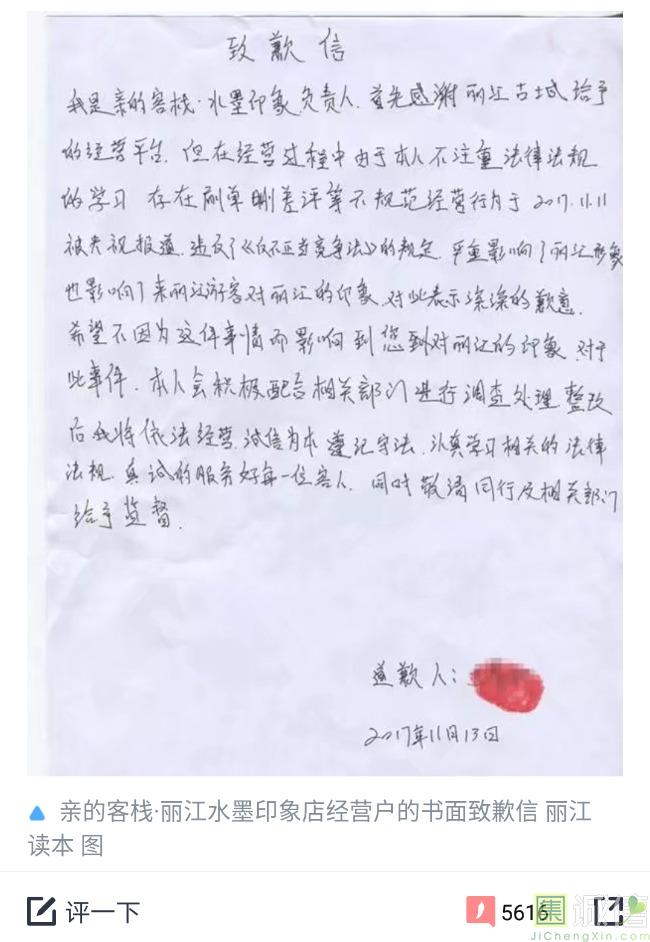 致歉信
我是亲的客栈·水墨印象负责人,首先感谢丽江古城给予
的经营平台,但在经营过程中由于本人不注重法律法规
的学习 存在刷单删差评等不规范经营行为于2017.11.11
被央视报道,违反了《反不正当竞争法》的规定,严重影响了丽江形象
也影响了来丽江游客对丽江的印象,对此表示深深的歉意.
希望不因为这件事情而影响到您到对丽江的印象,对于
此事件,本人会积极配合相关部门进行调查处理 整改
后我将依法经营,诚信为本 遵纪守法,认真学习相关的法律
法规,真诚的服务好每一位客人,同时敬请同行及相关部门
给予监督.
道歉人:
2017年11月13日
亲的客栈·丽江水墨印象店经营户的书面致歉信 丽江
读本 图
评一下
5616
集诚信
JiChengXin.com